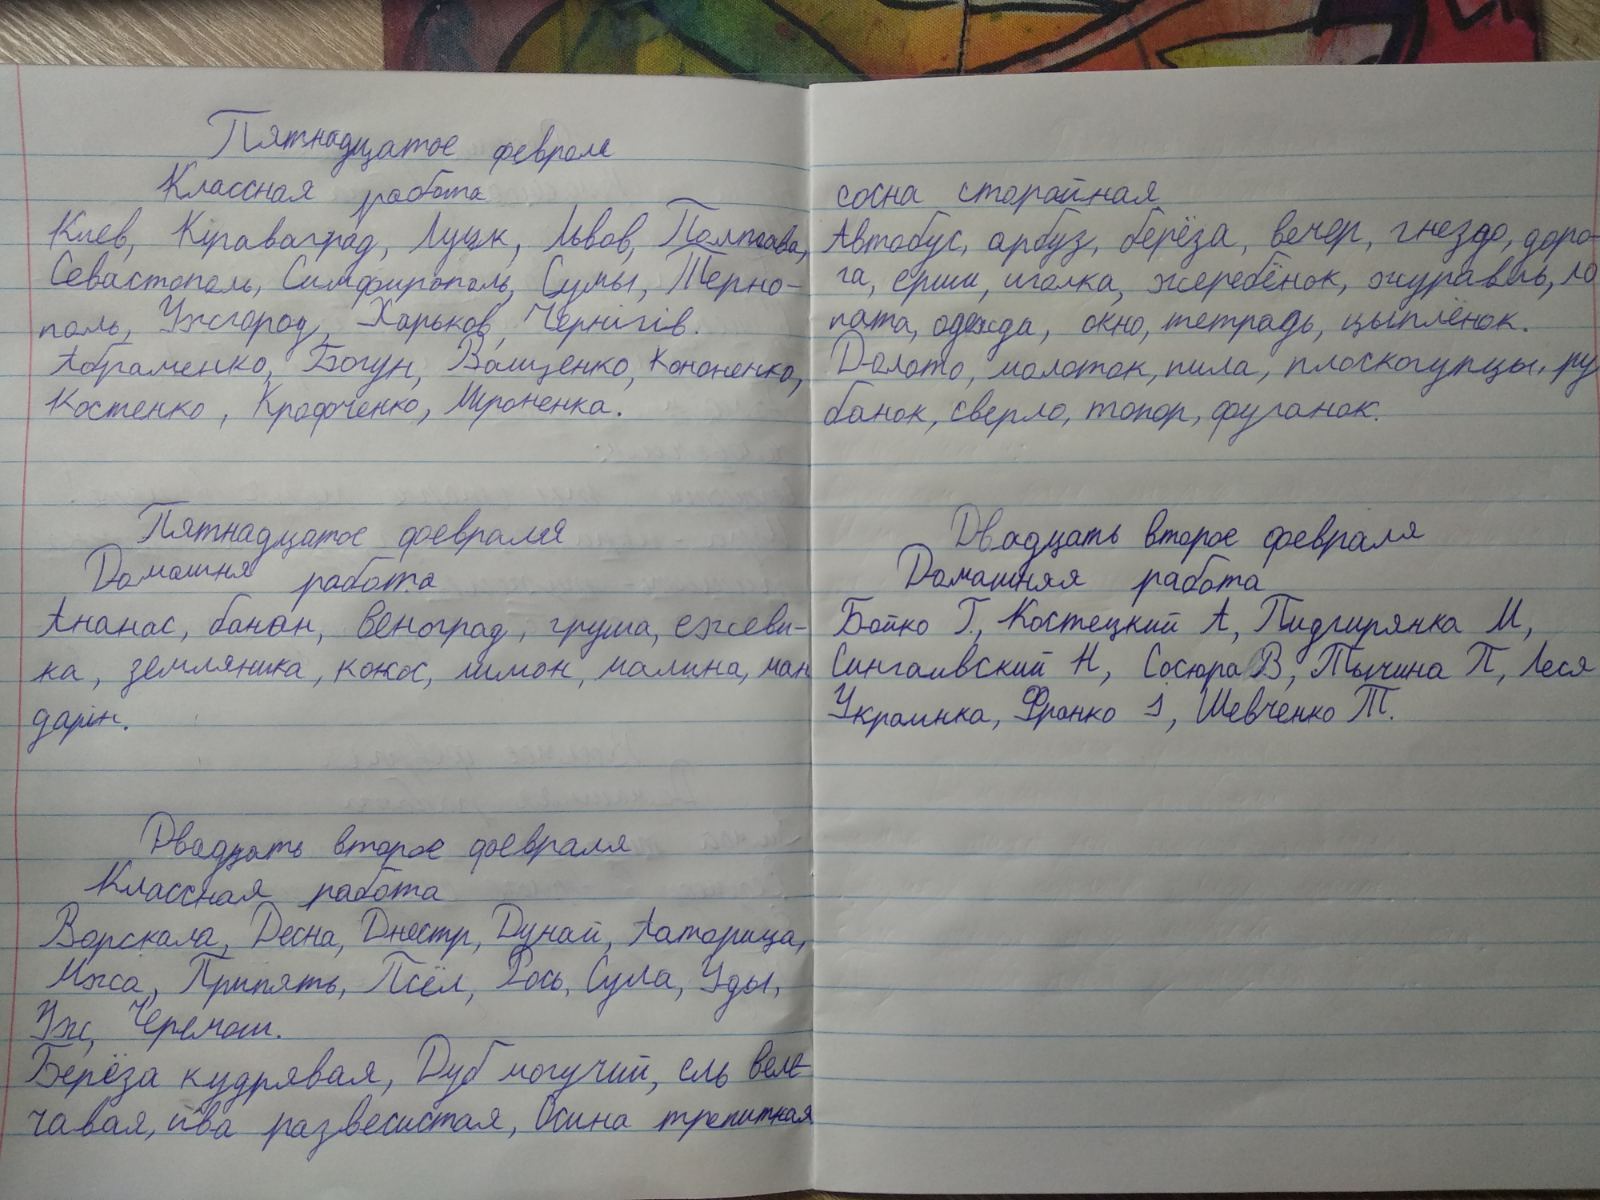 Пятнадцатое февроля
Классная работа
Киев, Кіраваград, Луцк, Львов, Полтава,
Севастополь, Симфирополь, Сумы, Терно-
поль, Ужгород, Харьков, Чернігів.
Абраменко, Богун, Ващенко, Кононенко,
Костенко, Крафченко, Мироненка.
Пятнадцатое февраля
Домашня работа
Ананас, банан, веноград, груша, ежеви-
ка, земляника, кокос, лимон, малина, ман
дарін.
Двадцать второе февраля
Классная работа
Ворскала, Десна, Днестр, Дунай, Латорица,
Мжа, Припять, Псёл, Рось, Сула, Уды,
Уж, Черемош.
Берёза кудрявая, Дуб могучий, ель веле-
чавая, ива развесистая, Осина трепитная
сосна старайная
Автобус, арбуз, берёза, вечер, гнездо, доро-
га, ерши, иголка, жеребёнок, журавль, ло
пата, одежда, окно, тетрадь, цыплёнок.
Долото, молоток, пила, плоскогупцы, ру
банок, сверло, топор, фуганок.
Двадцать второе февраля
Домашняя работа
Бойко Г, Костецкий А, Пидгирянка М,
Сингаивский Н, Сосюра В, Тычина П, Леся
Украинка, Франко І, Шевченко Т.